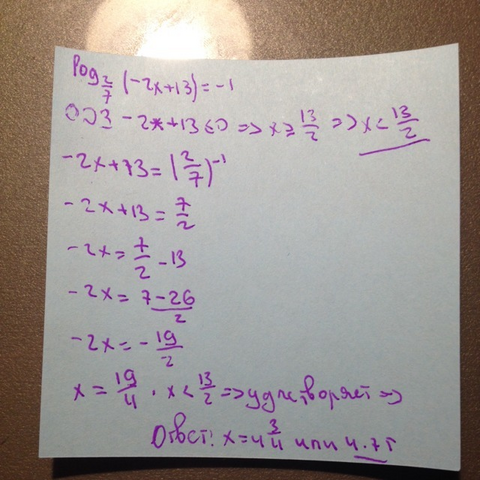 log_{2/7} (-2x+13) = -1
ОДЗ -2x+13≤0 => x ≥ 13/2 => x < 13/2
-2x+13 = (2/7)^{-1}
-2x+13 = 7/2
-2x = 7/2 - 13
-2x = 7-26/2
-2x = - 19/2
x = 19/4 , x < 13/2 => удлетворяет =>
Ответ: x = 4 3/4 или 4.75